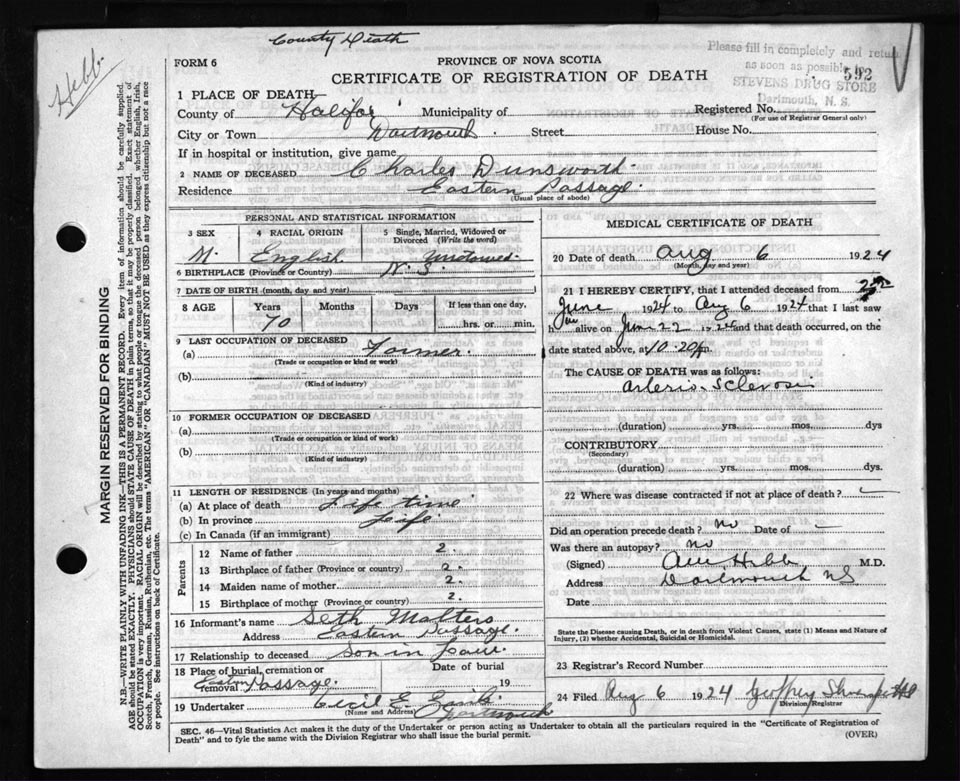 County Death
Hebb
FORM 6
PROVINCE OF NOVA SCOTIA
CERTIFICATE OF REGISTRATION OF DEATH
Please fill in completely and return
as soon as possible to
592
STEVENS DRUG STORE
Dartmouth, N. S.
1 PLACE OF DEATH—
County of Halifax Municipality of Registered No.
(For use of Registrar General only)
City or Town Dartmouth. Street House No.
If in hospital or institution, give name
2 NAME OF DECEASED Charles Dunsworth.
Residence Eastern Passage.
(Usual place of abode)
PERSONAL AND STATISTICAL INFORMATION
3 SEX
M.
4 RACIAL ORIGIN
English
5 Single, Married, Widowed or
Divorced (Write the word)
Widowed.
6 BIRTHPLACE (Province or Country) N. S.
7 DATE OF BIRTH (month, day and year)
8 AGE Years Months Days If less than one day,
70 hrs. or min.
9 LAST OCCUPATION OF DECEASED
(a)
(Trade or occupation or kind or work)
(b)
(Kind of industry)
10 FORMER OCCUPATION OF DECEASED
(a)
(Trade or occupation or kind of work)
(b)
(Kind of industry)
11 LENGTH OF RESIDENCE (In years and months)
(a) At place of death Life time
(b) In province Life
(c) In Canada (if an immigrant)
Parents
12 Name of father 2.
13 Birthplace of father (Province or country) 2.
14 Maiden name of mother 2.
15 Birthplace of mother (Province or country) 2.
16 Informant's name Seth
Address Eastern Passage.
17 Relationship to deceased Son in Law.
18 Place of burial, cremation or
removal Eastern Passage.
Date of burial
19
19 Undertaker Cecil E.
(Name and Address) Dartmouth
MEDICAL CERTIFICATE OF DEATH
20 Date of death Aug 6 1924
(Month, day and year)
21 I HEREBY CERTIFY, that I attended deceased from
June 1924 to Aug 6 1924 that I last saw
him alive on June 22 1924 and that death occurred, on the
date stated above, at 10.20 pm.
The CAUSE OF DEATH was as follows:
Arterio-Sclerosis
(duration) yrs. mos. dys
CONTRIBUTORY
(Secondary)
(duration) yrs. mos. dys.
22 Where was disease contracted if not at place of death?
Did an operation precede death? no Date of —
Was there an autopsy? no
(Signed) Hebb M.D.
Address Dartmouth NS
Date
State the Disease causing Death, or in death from Violent Causes, state (1) Means and Nature of
Injury, (2) whether Accidental, Suicidal or Homicidal.
23 Registrar's Record Number
24 Filed Aug 6 1924 Geoffrey
Division Registrar
SEC. 46—Vital Statistics Act makes it the duty of the Undertaker or person acting as Undertaker to obtain all the particulars required in the "Certificate of Registration of
Death" and to fyle the same with the Division Registrar who shall issue the burial permit.
(OVER)
MARGIN RESERVED FOR BINDING
N.B.—WRITE PLAINLY WITH UNFADING INK—THIS IS A PERMANENT RECORD. Every item of information should be carefully supplied.
AGE should be stated EXACTLY. PHYSICIANS should STATE CAUSE OF DEATH in plain terms, so that it may be properly classified. Exact statement of
OCCUPATION is very important. RACIAL ORIGIN will be described by stating to what people or tongue the deceased person belonged whether English, Irish,
Scotch, French, German, Russian, Ruthenian, etc. The terms "AMERICAN" or "CANADIAN" MUST NOT BE USED as they express citizenship but not a race
or people. See instructions on back of Certificate.